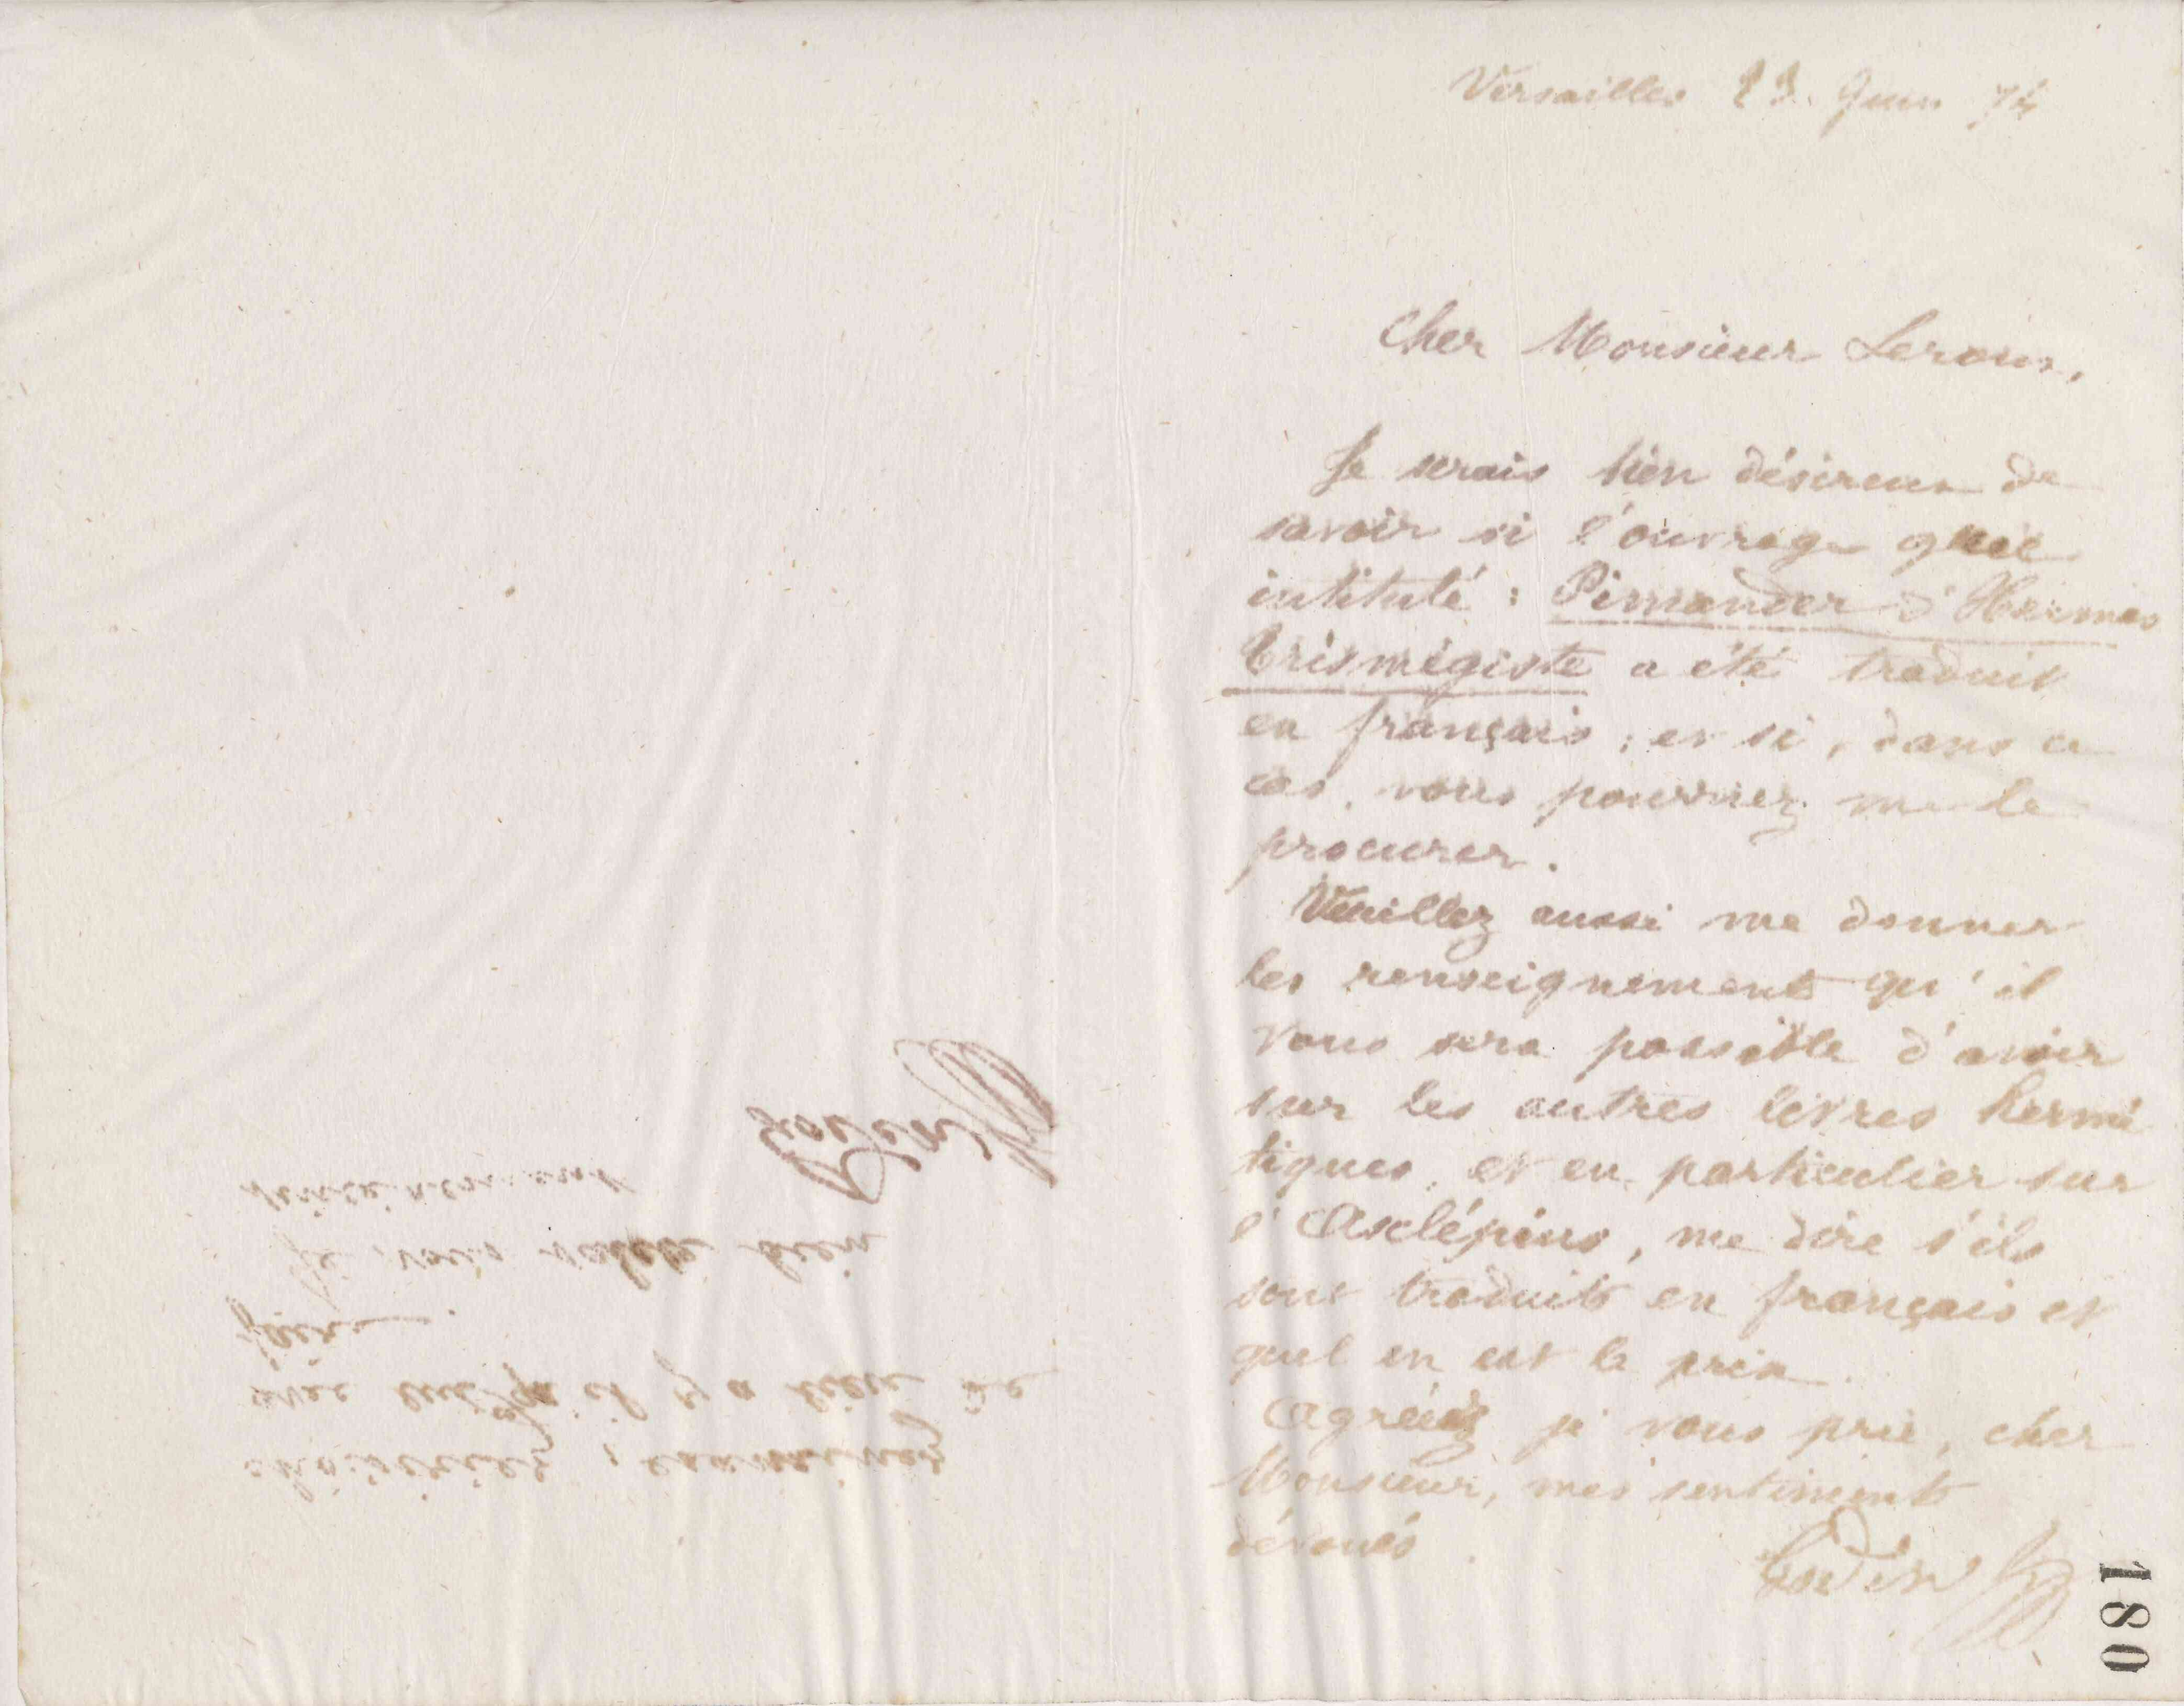 Versailles 23 Juin 74
Cher Monsieur Leroux,
Je serais bien désireux de
savoir si l'ouvrage
intitulé : Pimander d'Hermès
Trismégiste a été traduit
en français ; et si, dans ce
cas, vous pourriez me le
procurer.
Veuillez aussi me donner
les renseignements qu'il
vous sera possible d'avoir
sur les autres livres hermé
tiques, et en particulier sur
l'Asclépius, me dire s'ils
sont traduits en français et
quel en est le prix.
Agréez je vous prie, cher
Monsieur, mes sentiments
dévoués.
Godin
180
examinez
avec lui s'il y a lieu de
Je vous salue bien
Godin